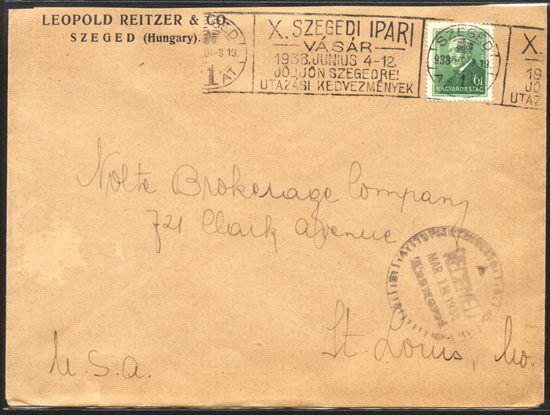 LEOPOLD REITZER & CO.
SZEGED (Hungary).
X. SZEGEDI IPARI
VÁSÁR
1938. JUNIUS 4-12.
JÖJJÖN SZEGEDRE!
UTAZÁSI KEDVEZMÉNYEK
SZEGED
1
SZEGED
938
1
6f
MAGYARORSZÁG
X.
19
JÖ
UTAZ
Nolte Brokerage Company
721 Clark Avenue
RECEIVED
MAR 18 1938
Answered
St. Louis, Mo.
U.S.A.